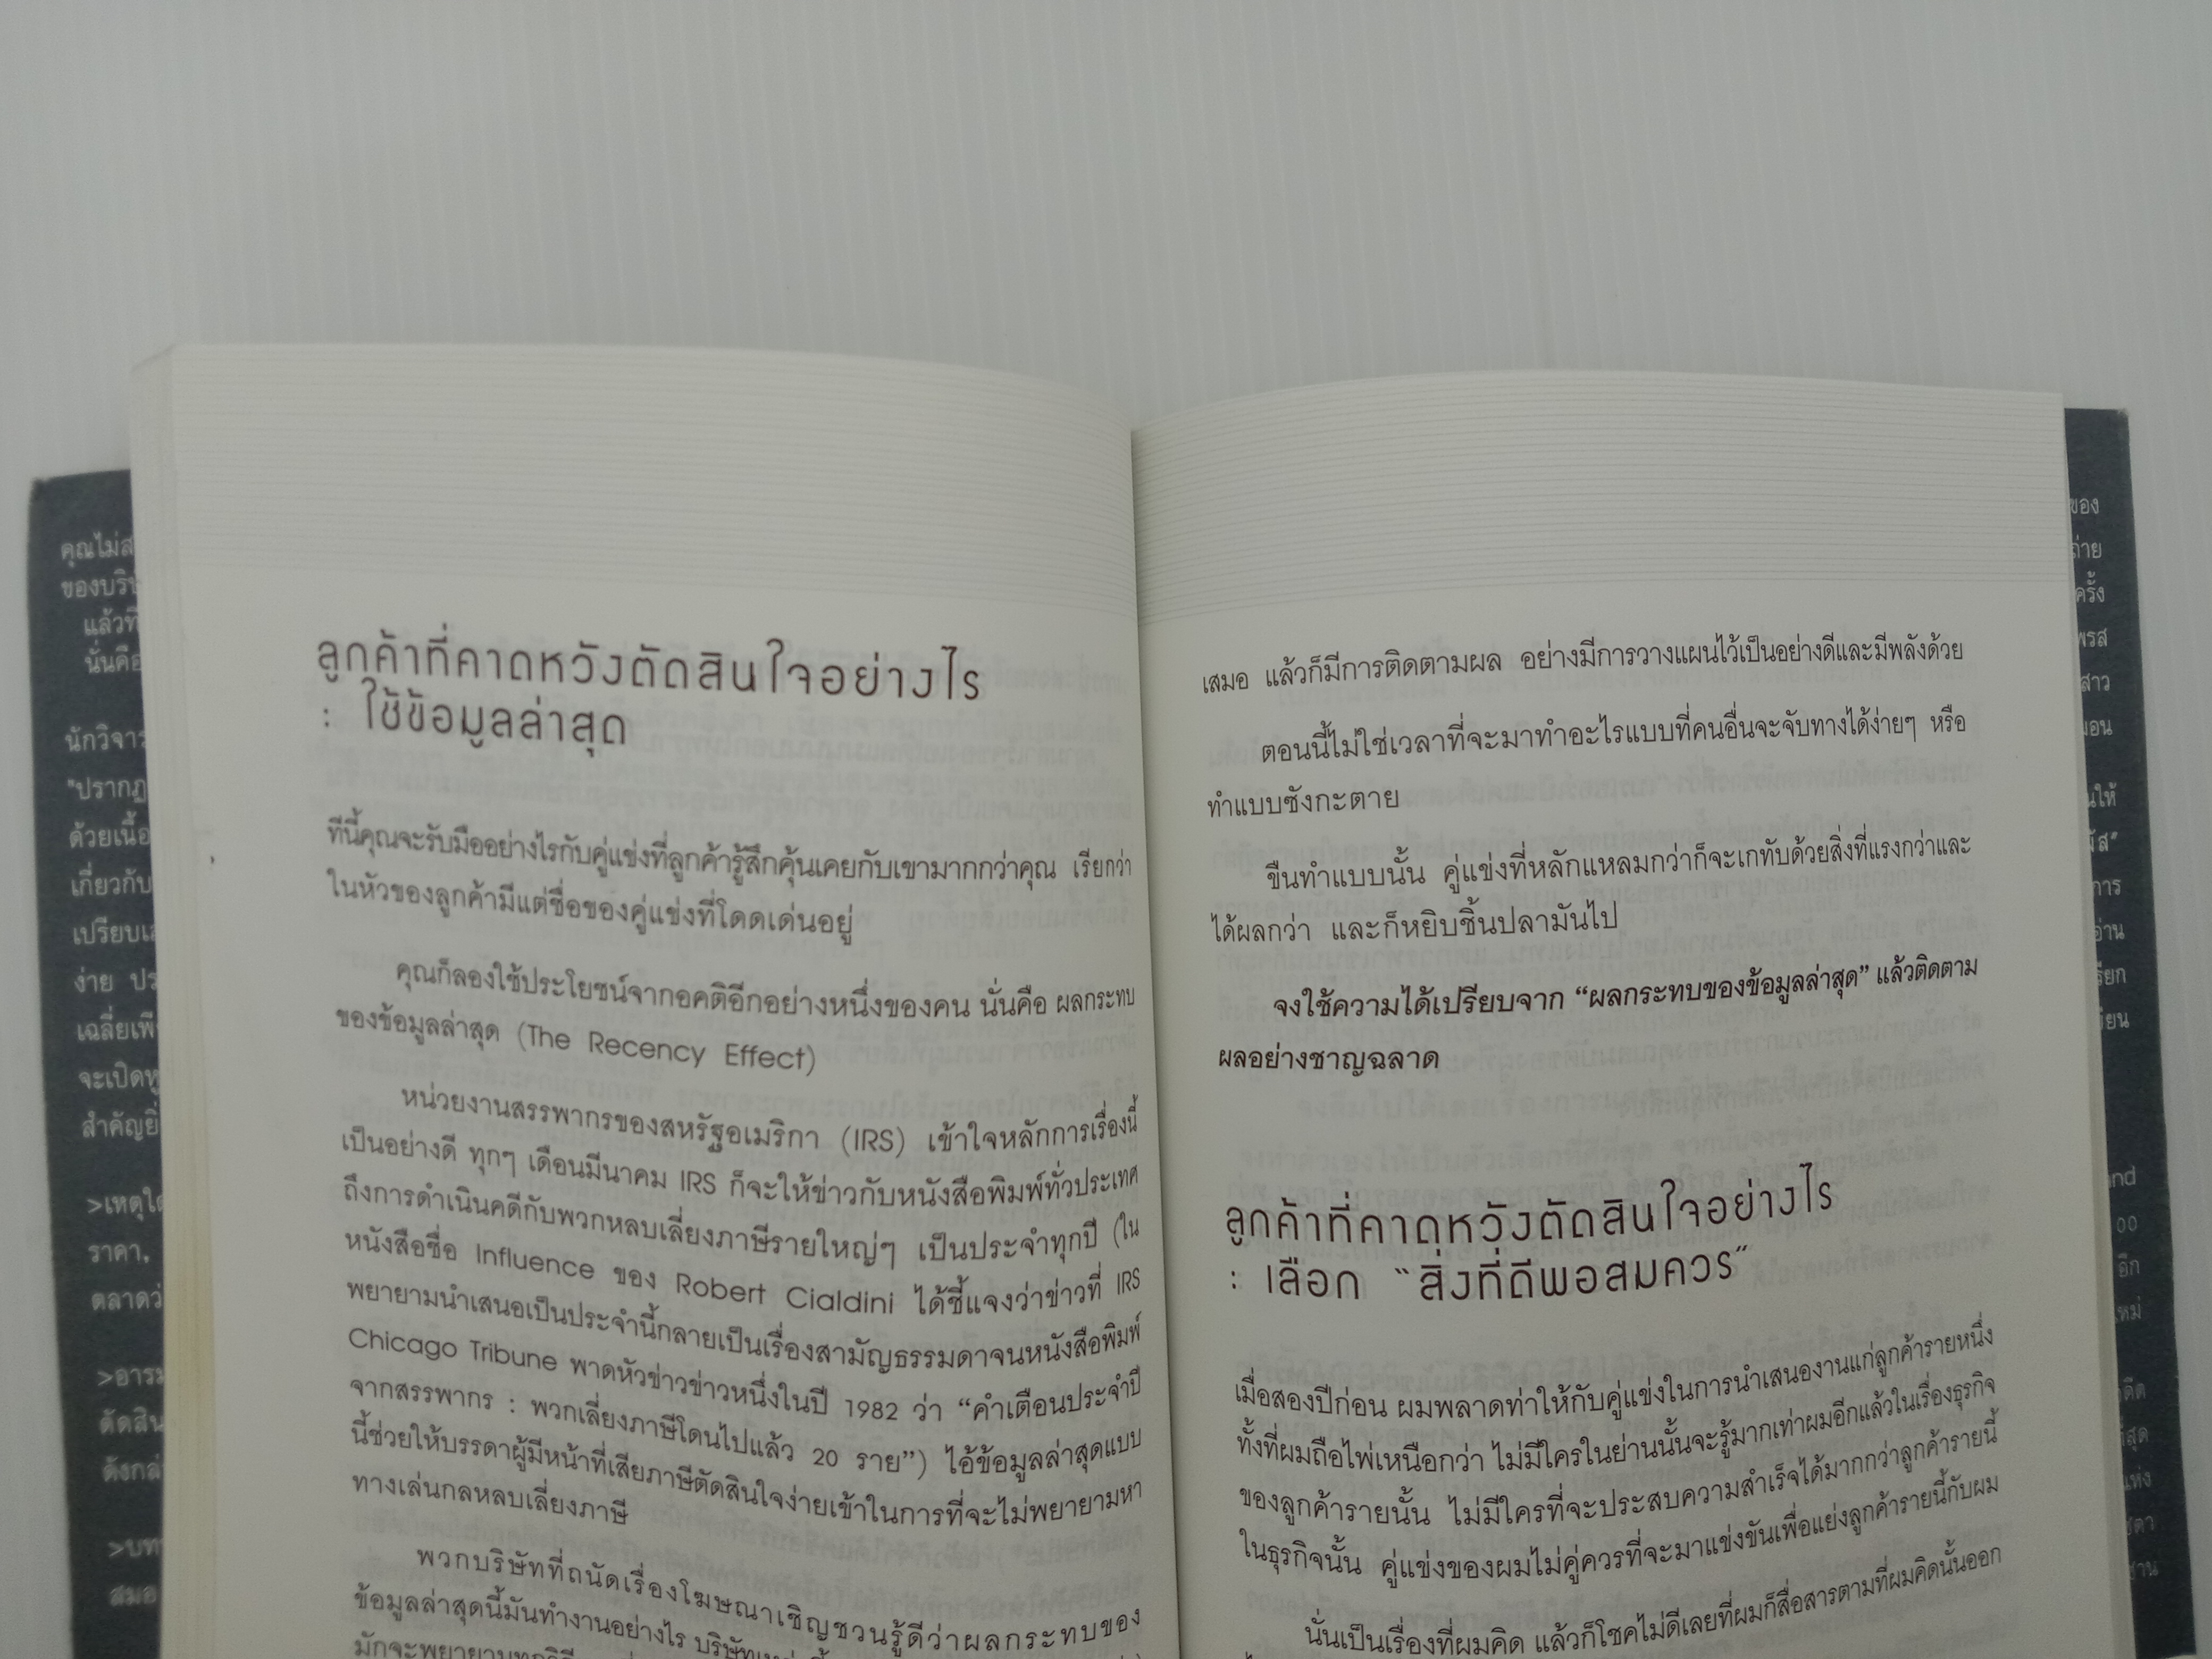 ลูกค้าที่คาดหวังตัดสินใจอย่างไร
: ใช้ข้อมูลล่าสุด
ทีนี้คุณจะรับมืออย่างไรกับคู่แข่งที่ลูกค้ารู้สึกคุ้นเคยกับเขามากกว่าคุณ เรียกว่า
ในหัวของลูกค้ามีแต่ชื่อของคู่แข่งที่โดดเด่นอยู่
คุณก็ลองใช้ประโยชน์จากอคติอีกอย่างหนึ่งของคน นั่นคือ ผลกระทบ
ของข้อมูลล่าสุด (The Recency Effect)
หน่วยงานสรรพากรของสหรัฐอเมริกา (IRS) เข้าใจหลักการเรื่องนี้
เป็นอย่างดี ทุกๆ เดือนมีนาคม IRS ก็จะให้ข่าวกับหนังสือพิมพ์ทั่วประเทศ
ถึงการดำเนินคดีกับพวกหลบเลี่ยงภาษีรายใหญ่ๆ เป็นประจำทุกปี (ใน
หนังสือชื่อ Influence ของ Robert Cialdini ได้ชี้แจงว่าข่าวที่ IRS
พยายามนำเสนอเป็นประจำนี้กลายเป็นเรื่องสามัญธรรมดาจนหนังสือพิมพ์
Chicago Tribune พาดหัวข่าวข่าวหนึ่งในปี 1982 ว่า “คำเตือนประจำปี
จากสรรพากร : พวกเลี่ยงภาษีโดนไปแล้ว 20 ราย”) ไอ้ข้อมูลล่าสุดแบบ
นี้ช่วยให้บรรดาผู้มีหน้าที่เสียภาษีตัดสินใจง่ายเข้าในการที่จะไม่พยายามหา
ทางเล่นกลหลบเลี่ยงภาษี
พวกบริษัทที่ถนัดเรื่องโฆษณาเชิญชวนรู้ดีว่าผลกระทบของ
ข้อมูลล่าสุดนี้มันทำงานอย่างไร
มักจะพยายาม
เสมอ แล้วก็มีการติดตามผล อย่างมีการวางแผนไว้เป็นอย่างดีและมีพลังด้วย
ตอนนี้ไม่ใช่เวลาที่จะมาทำอะไรแบบที่คนอื่นจะจับทางได้ง่ายๆ หรือ
ทำแบบซังกะตาย
ขืนทำแบบนั้น คู่แข่งที่หลักแหลมกว่าก็จะเกทับด้วยสิ่งที่แรงกว่าและ
ได้ผลกว่า และก็หยิบชิ้นปลามันไป
จงใช้ความได้เปรียบจาก “ผลกระทบของข้อมูลล่าสุด” แล้วติดตาม
ผลอย่างชาญฉลาด
ลูกค้าที่คาดหวังตัดสินใจอย่างไร
: เลือก “สิ่งที่ดีพอสมควร”
เมื่อสองปีก่อน ผมพลาดท่าให้กับคู่แข่งในการนำเสนองานแก่ลูกค้ารายหนึ่ง
ทั้งที่ผมถือไพ่เหนือกว่า ไม่มีใครในย่านนั้นจะรู้มากเท่าผมอีกแล้วในเรื่องธุรกิจ
ของลูกค้ารายนั้น ไม่มีใครที่จะประสบความสำเร็จได้มากกว่าลูกค้ารายนี้
ในธุรกิจนั้น คู่แข่งของผมไม่คู่ควรที่จะมาแข่งขันเพื่อแย่งลูกค้ารายนี้กับผม
นั่นเป็นเรื่องที่ผมคิด แล้วก็โชคไม่ดีเลยที่ผมก็สื่อสารตามที่ผมคิดนั้นออก